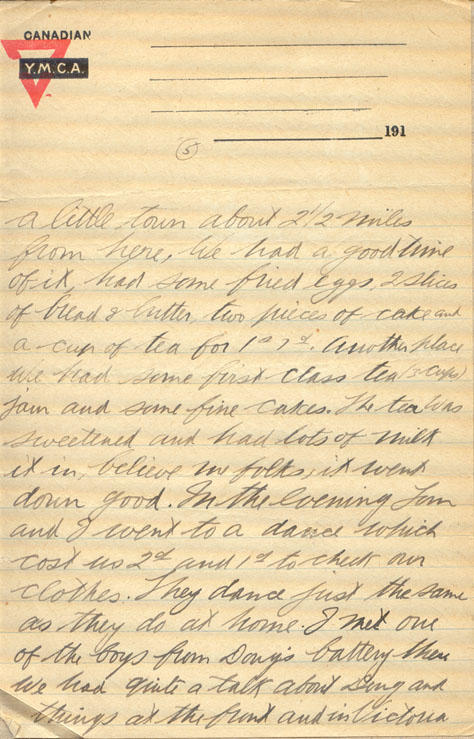 CANADIAN
Y.M.C.A.
191
(5)
a little town about 2 1/2 miles
from here, We had a good time
of it, had some fried eggs, 2 slices
of bread & butter, two pieces of cake and
a cup of tea for 1s 7d. Another place
we had some first class tea (3 cups)
jam and some fine cakes. The tea was
sweetened and had lots of milk
it in, believe me folks, it went
down good. In the evening Tom
and I went to a dance which
cost us 2d and 1d to check our
clothes. They dance just the same
as they do at home. I met one
of the boys from Doug's battery there
we had quite a talk about Doug and
things at the front and in Victoria